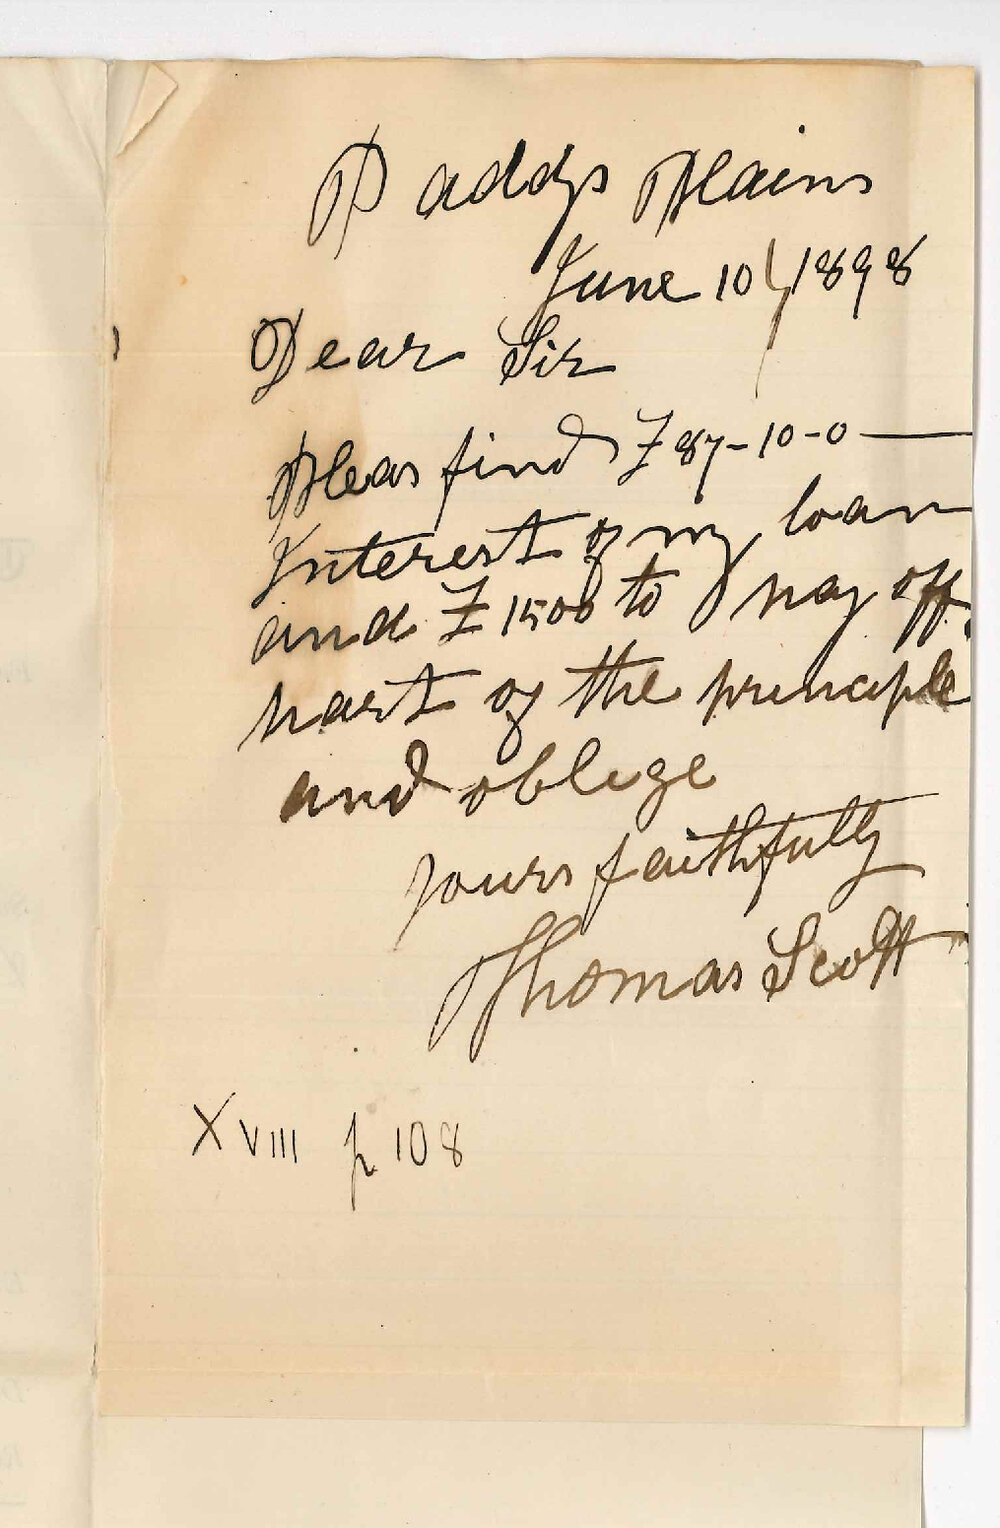 Paddys Plains
June 10/1898
Dear Sir
Pleas find £87-10-0—
Interest of my loan
and £1500 to pay off
part of the principle
and oblige
yours faithfully
Thomas Scott
XVIII p 108